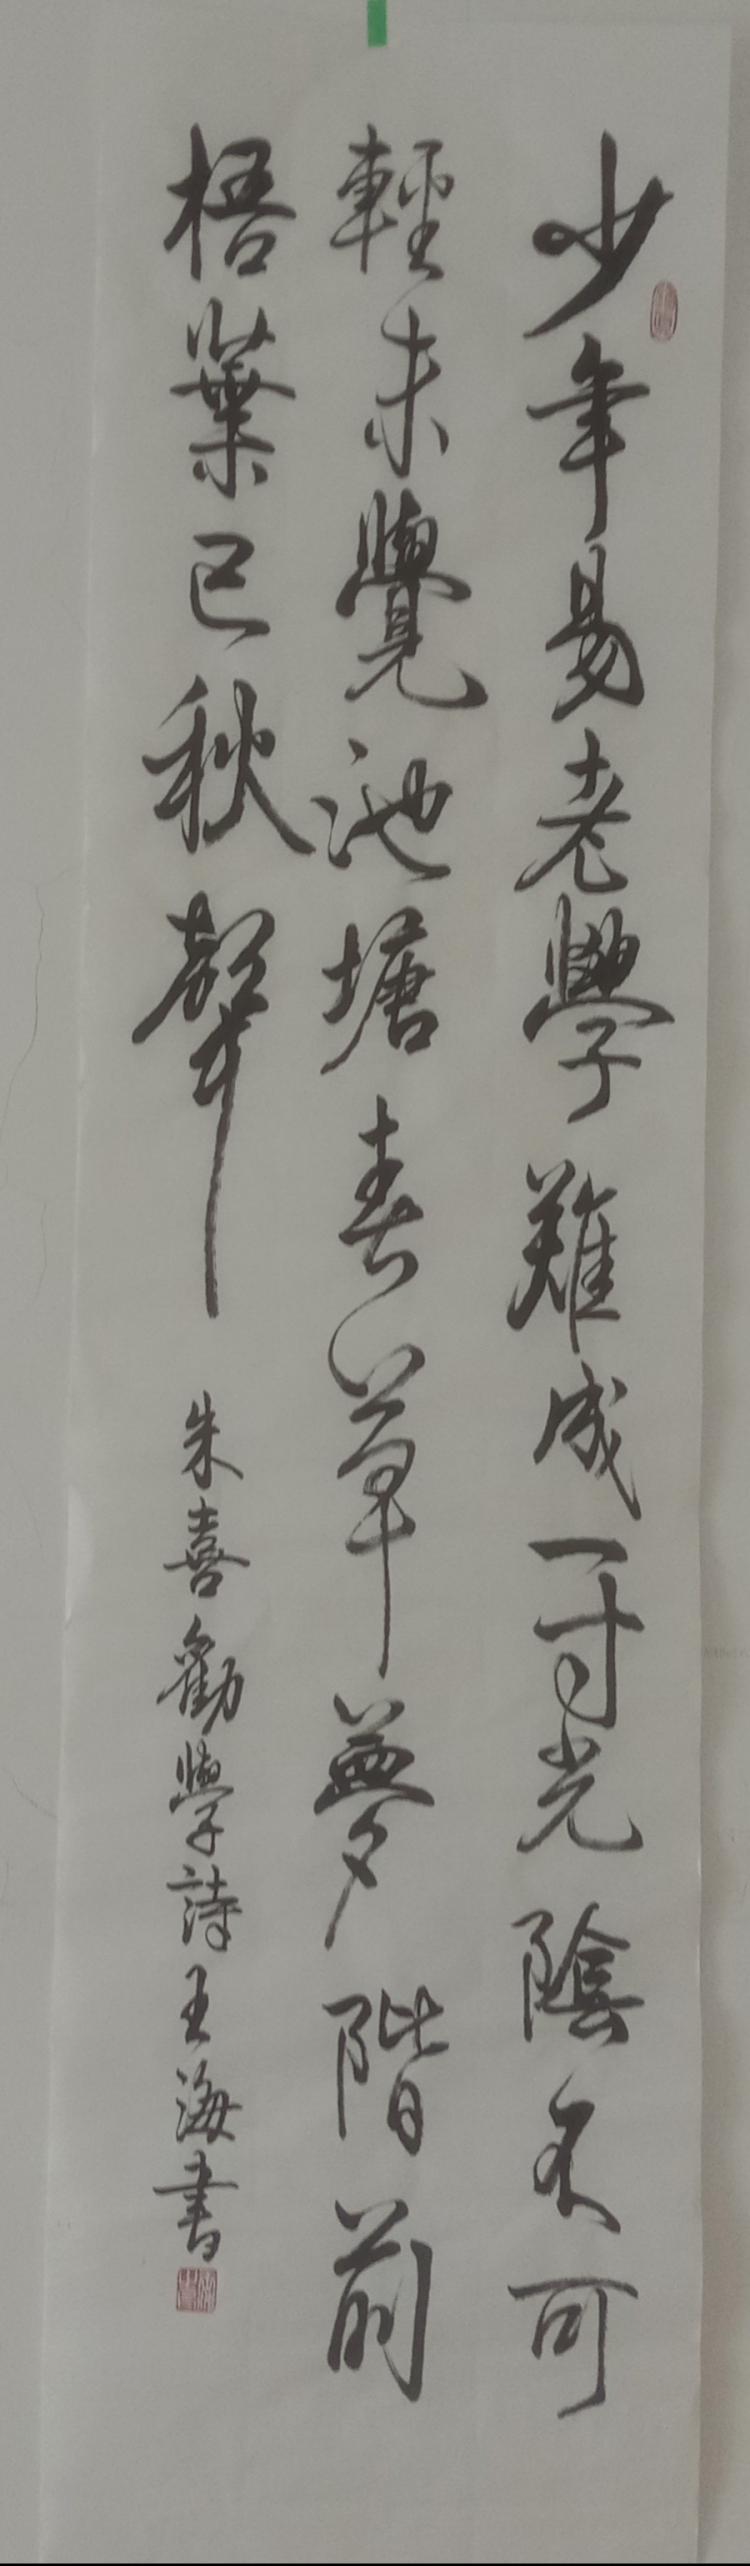 少年易老學難成一寸光陰不可
輕未覺池塘春草夢階前
梧葉已秋聲
朱喜勸學詩王海書